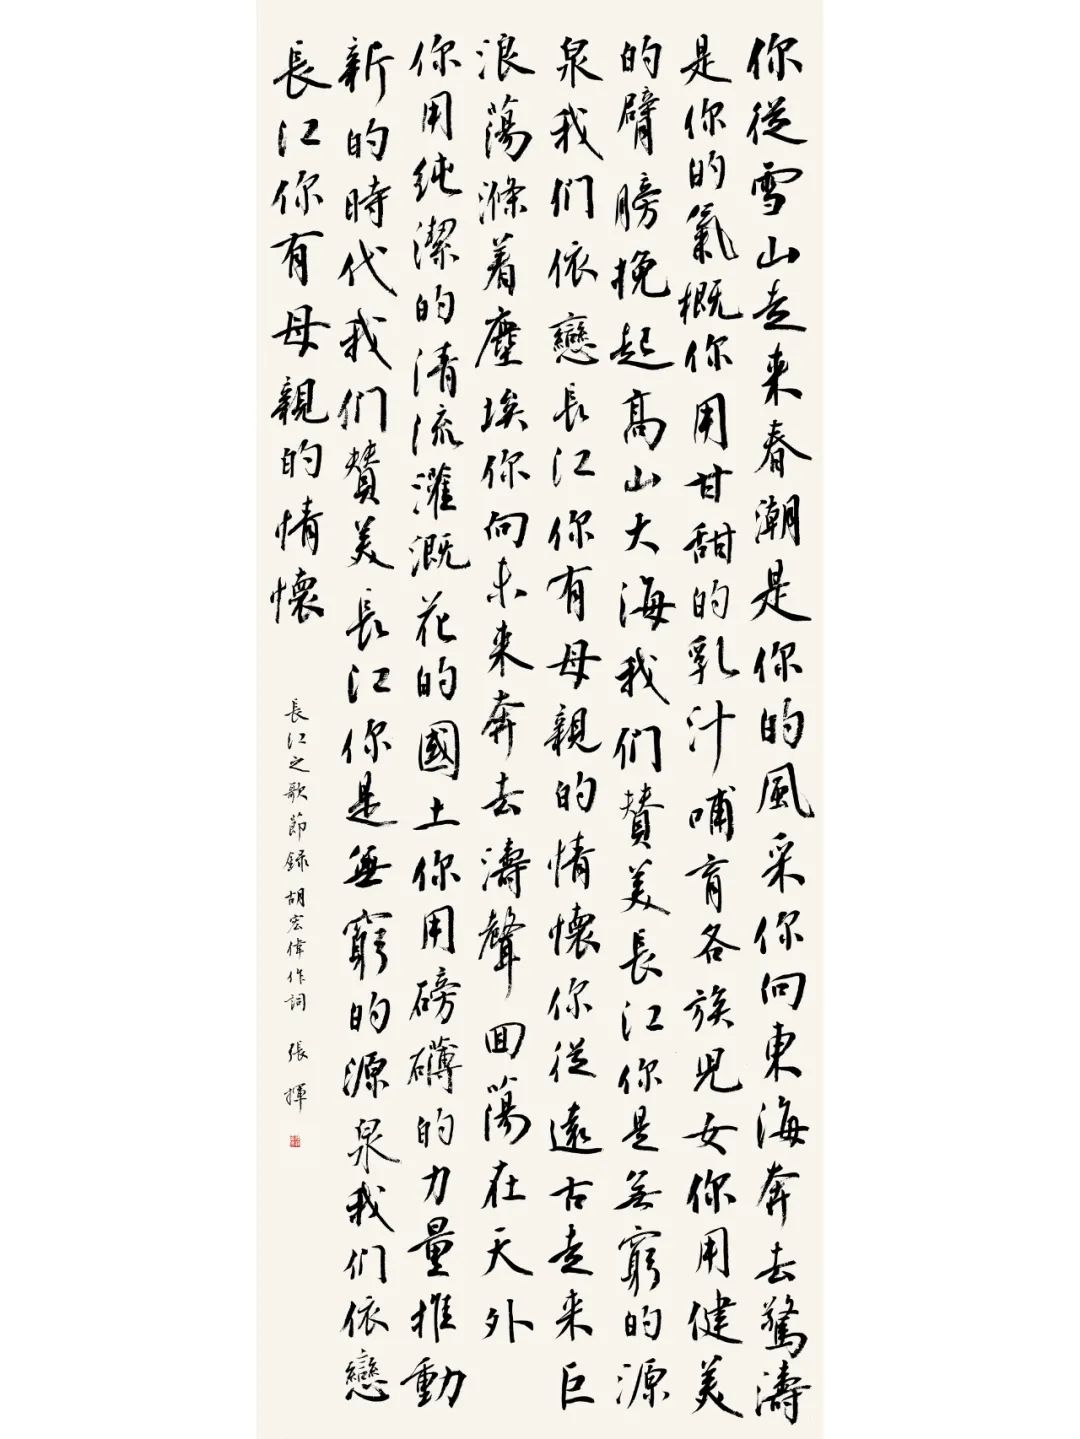 你從雪山走来春潮是你的風采你向東海奔去驚濤
是你的氣概你用甘甜的乳汁哺育各族兒女你用健美
的臂膀挽起高山大海我们賛美長江你是無窮的源
泉我们依戀長江你有母親的情懷你從遠古走来巨
浪蕩滌着塵埃你向未来奔去濤聲回蕩在天外
你用純潔的清流灌溉花的國土你用磅礴的力量推動
新的時代我们賛美長江你是無窮的源泉我们依戀
長江你有母親的情懷
長江之歌節録胡宏偉作詞 張揮